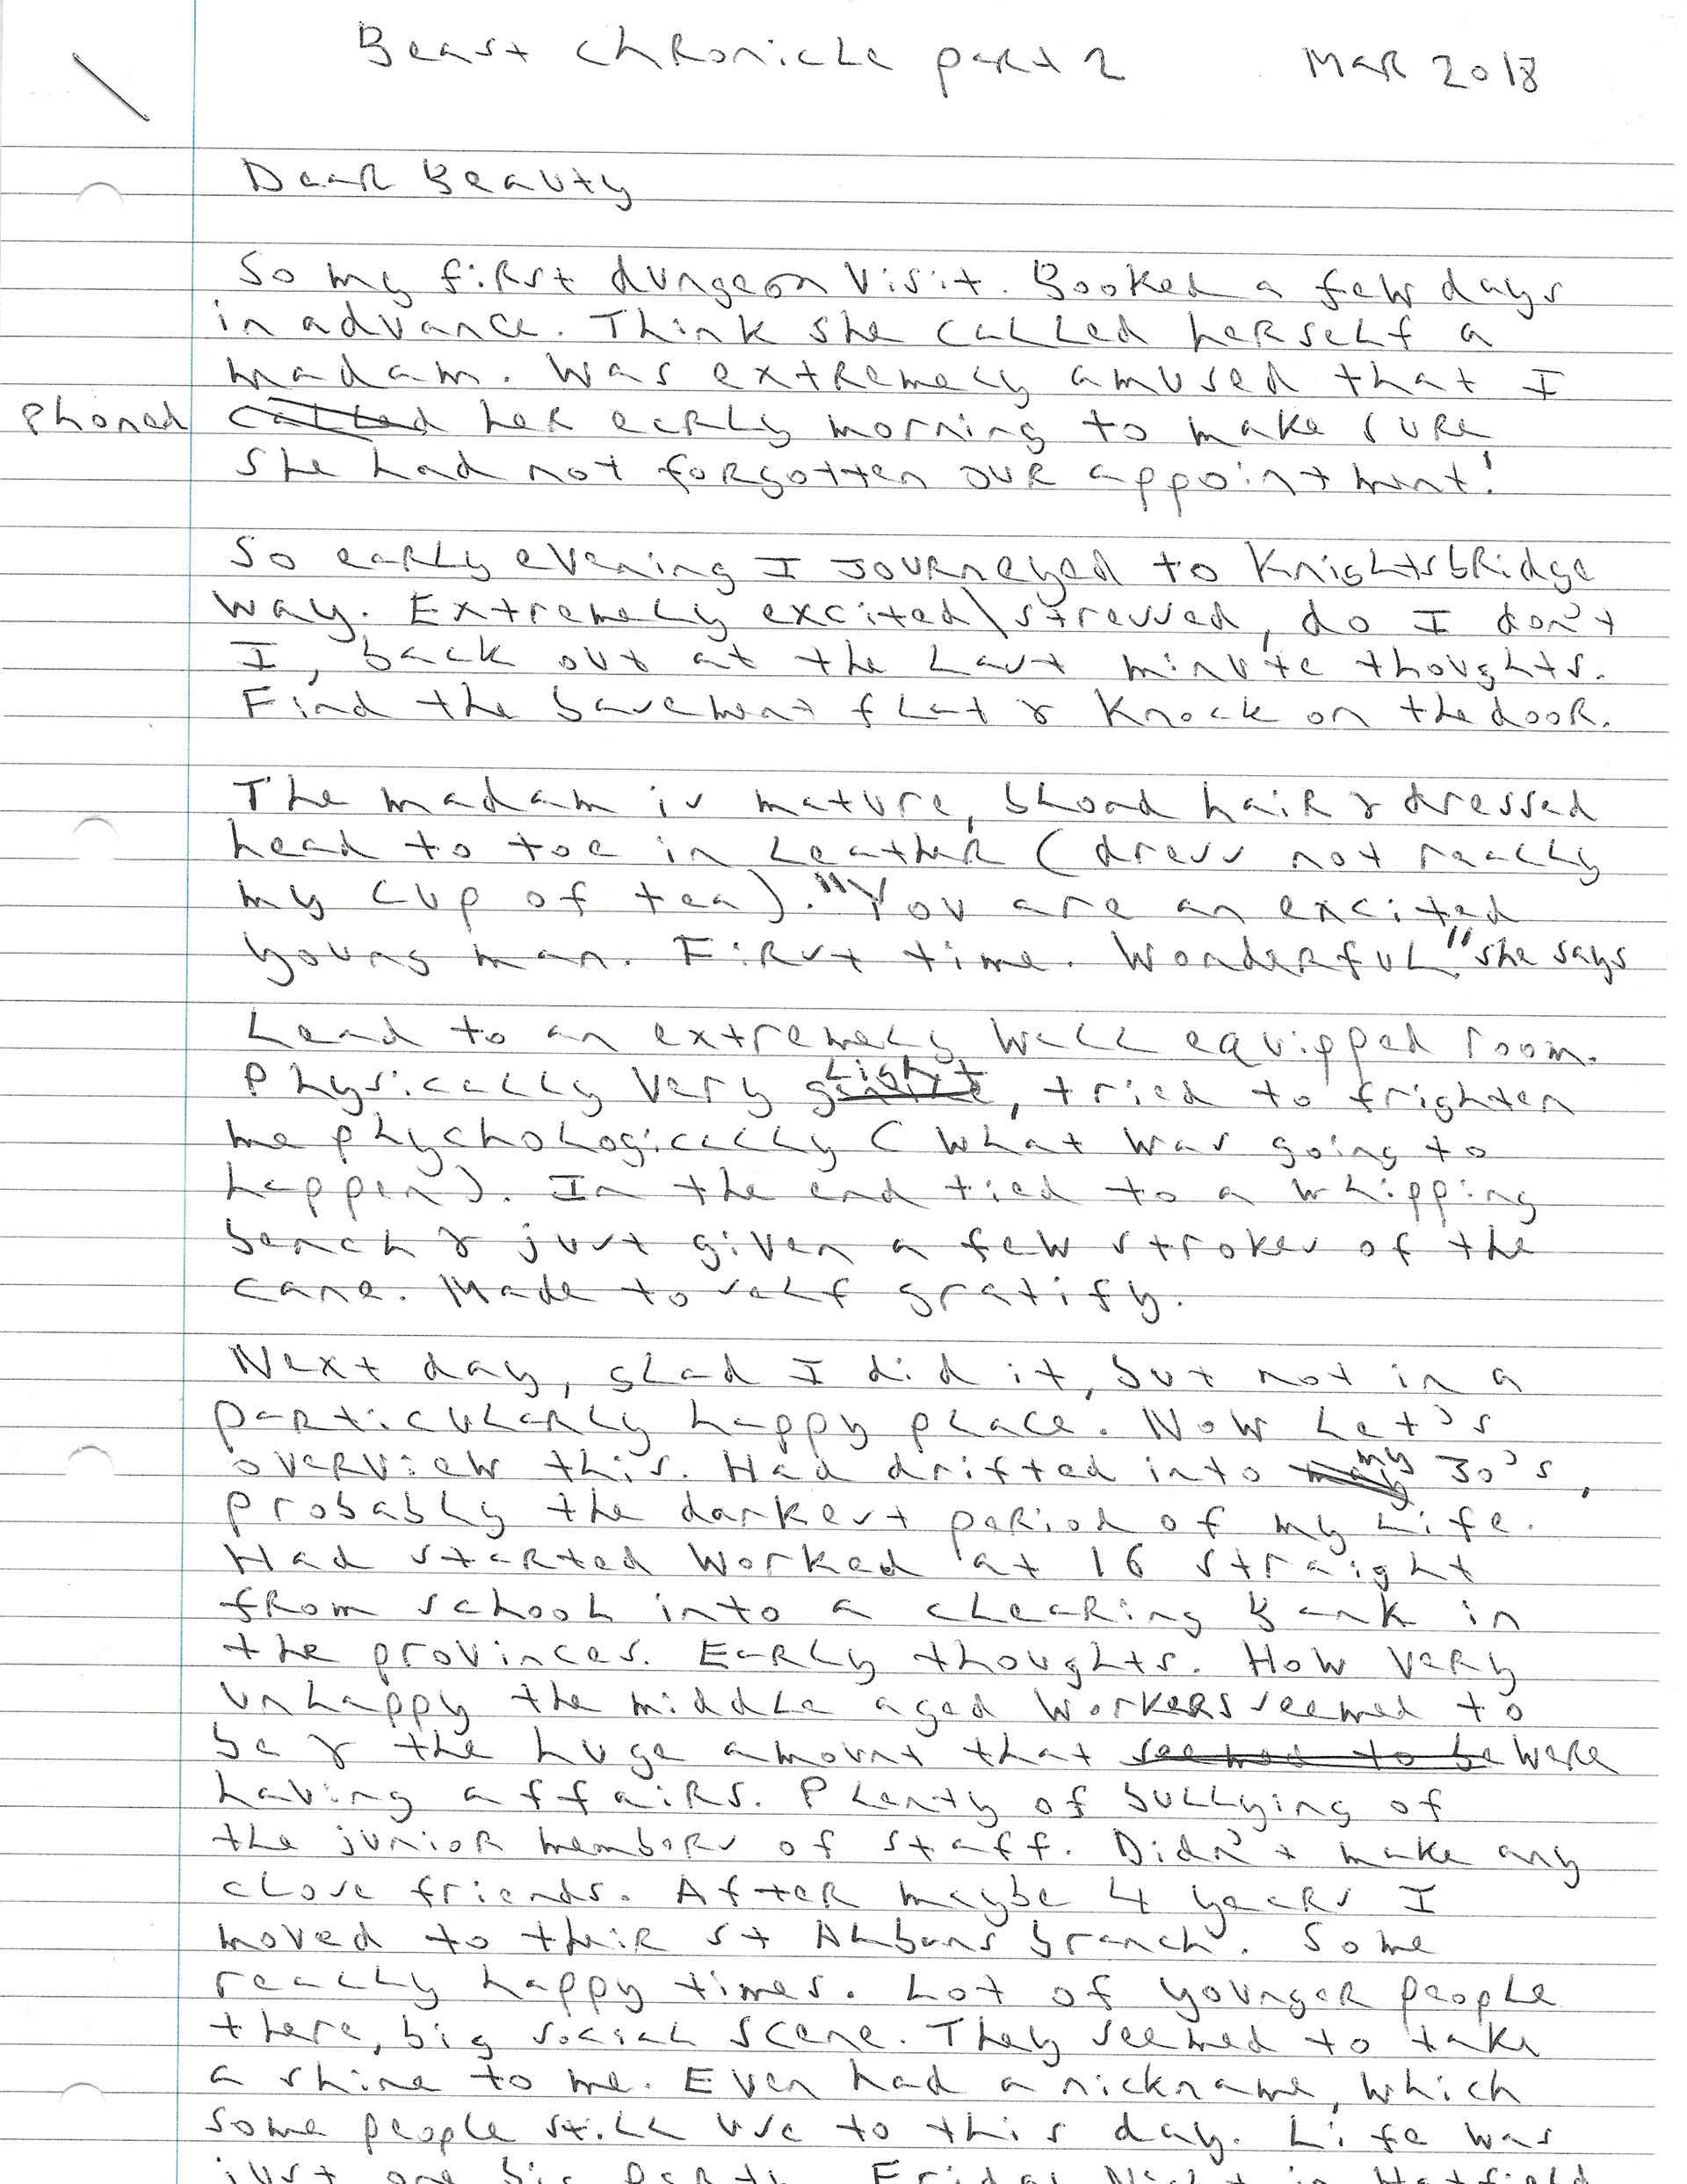 Beast chronicle part 2 Mar 2018
Dear Beauty
So my first dungeon visit. Booked a few days
in advance. Think she called herself a
madam. Was extremely amused that I
phoned called her early morning to make sure
she had not forgotten our appointment!
So early evening I journeyed to Knightsbridge
way. Extremely excited\stressed, do I don't
I, back out at the last minute thoughts.
Find the basement flat & knock on the door.
The madam is mature, blond hair & dressed
head to toe in leather (dress not really
my cup of tea). "You are an excited
young man. First time. Wonderful." she says
Lead to an extremely well equipped room.
Physically very gentle light, tried to frighten
me phychologically (what was going to
happen). In the end tied to a whipping
bench & just given a few strokes of the
cane. Made to self gratify.
Next day, glad I did it, but not in a
particularly happy place. Now let's
overview this. Had drifted into my 30's,
probably the darkest period of my life.
Had started worked at 16 straight
from school into a clearing bank in
the provinces. Early thoughts. How very
unhappy the middle aged workers seemed to
be & the huge amount that seemed to be were
having affairs. Plenty of bullying of
the junior members of staff. Didn't make any
close friends. After maybe 4 years I
moved to their St Albans branch. Some
really happy times. Lot of younger people
there, big social scene. They seemed to take
a shine to me. Even had a nickname, which
some people still use to this day. Life was
just one big party. Friday Night in Hatfield